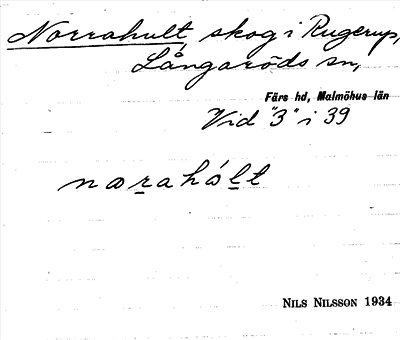 Norrahult, skog i Rugerup,
Långaröds sn,
Färs hd, Malmöhus län
Vid "3" i 39
norahólt
Nils Nilsson 1934